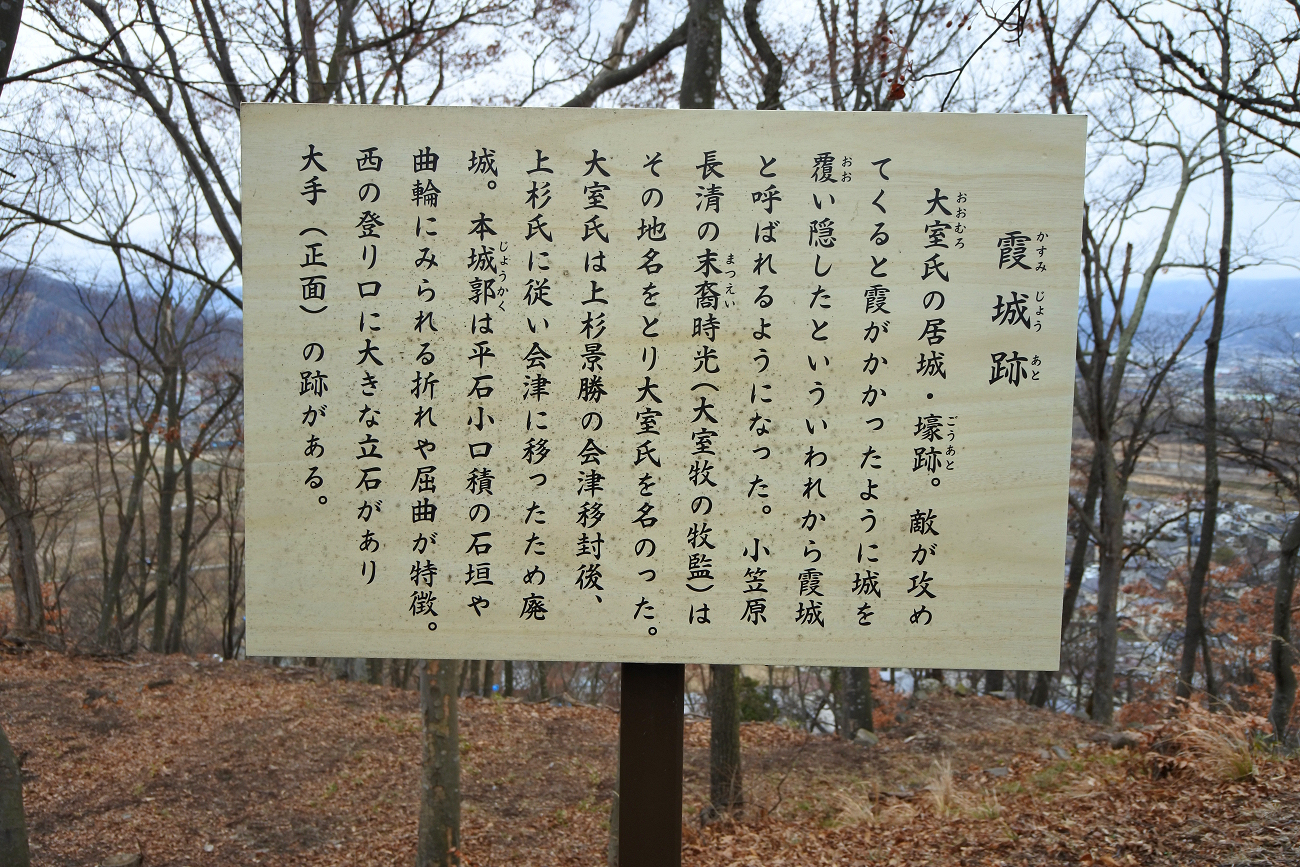 霞城跡
かすみ じょう あと
大室氏の居城・壕跡。敵が攻め
おおむろ ごうあと
てくると霞がかかったように城を
覆い隠したといういわれから霞城
おお
と呼ばれるようになった。小笠原
長清の末裔時光(大室牧の牧監)は
まつえい
その地名をとり大室氏を名のった。
大室氏は上杉景勝の会津移封後、
上杉氏に従い会津に移ったため廃
城。本城郭は平石小口積の石垣や
じょうかく
曲輪にみられる折れや屈曲が特徴。
西の登り口に大きな立石があり
大手(正面)の跡がある。